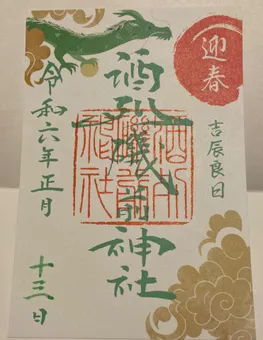 迎春
吉辰良日
酒列磯前神社
酒列
磯前
神社
令和六年正月
十三日